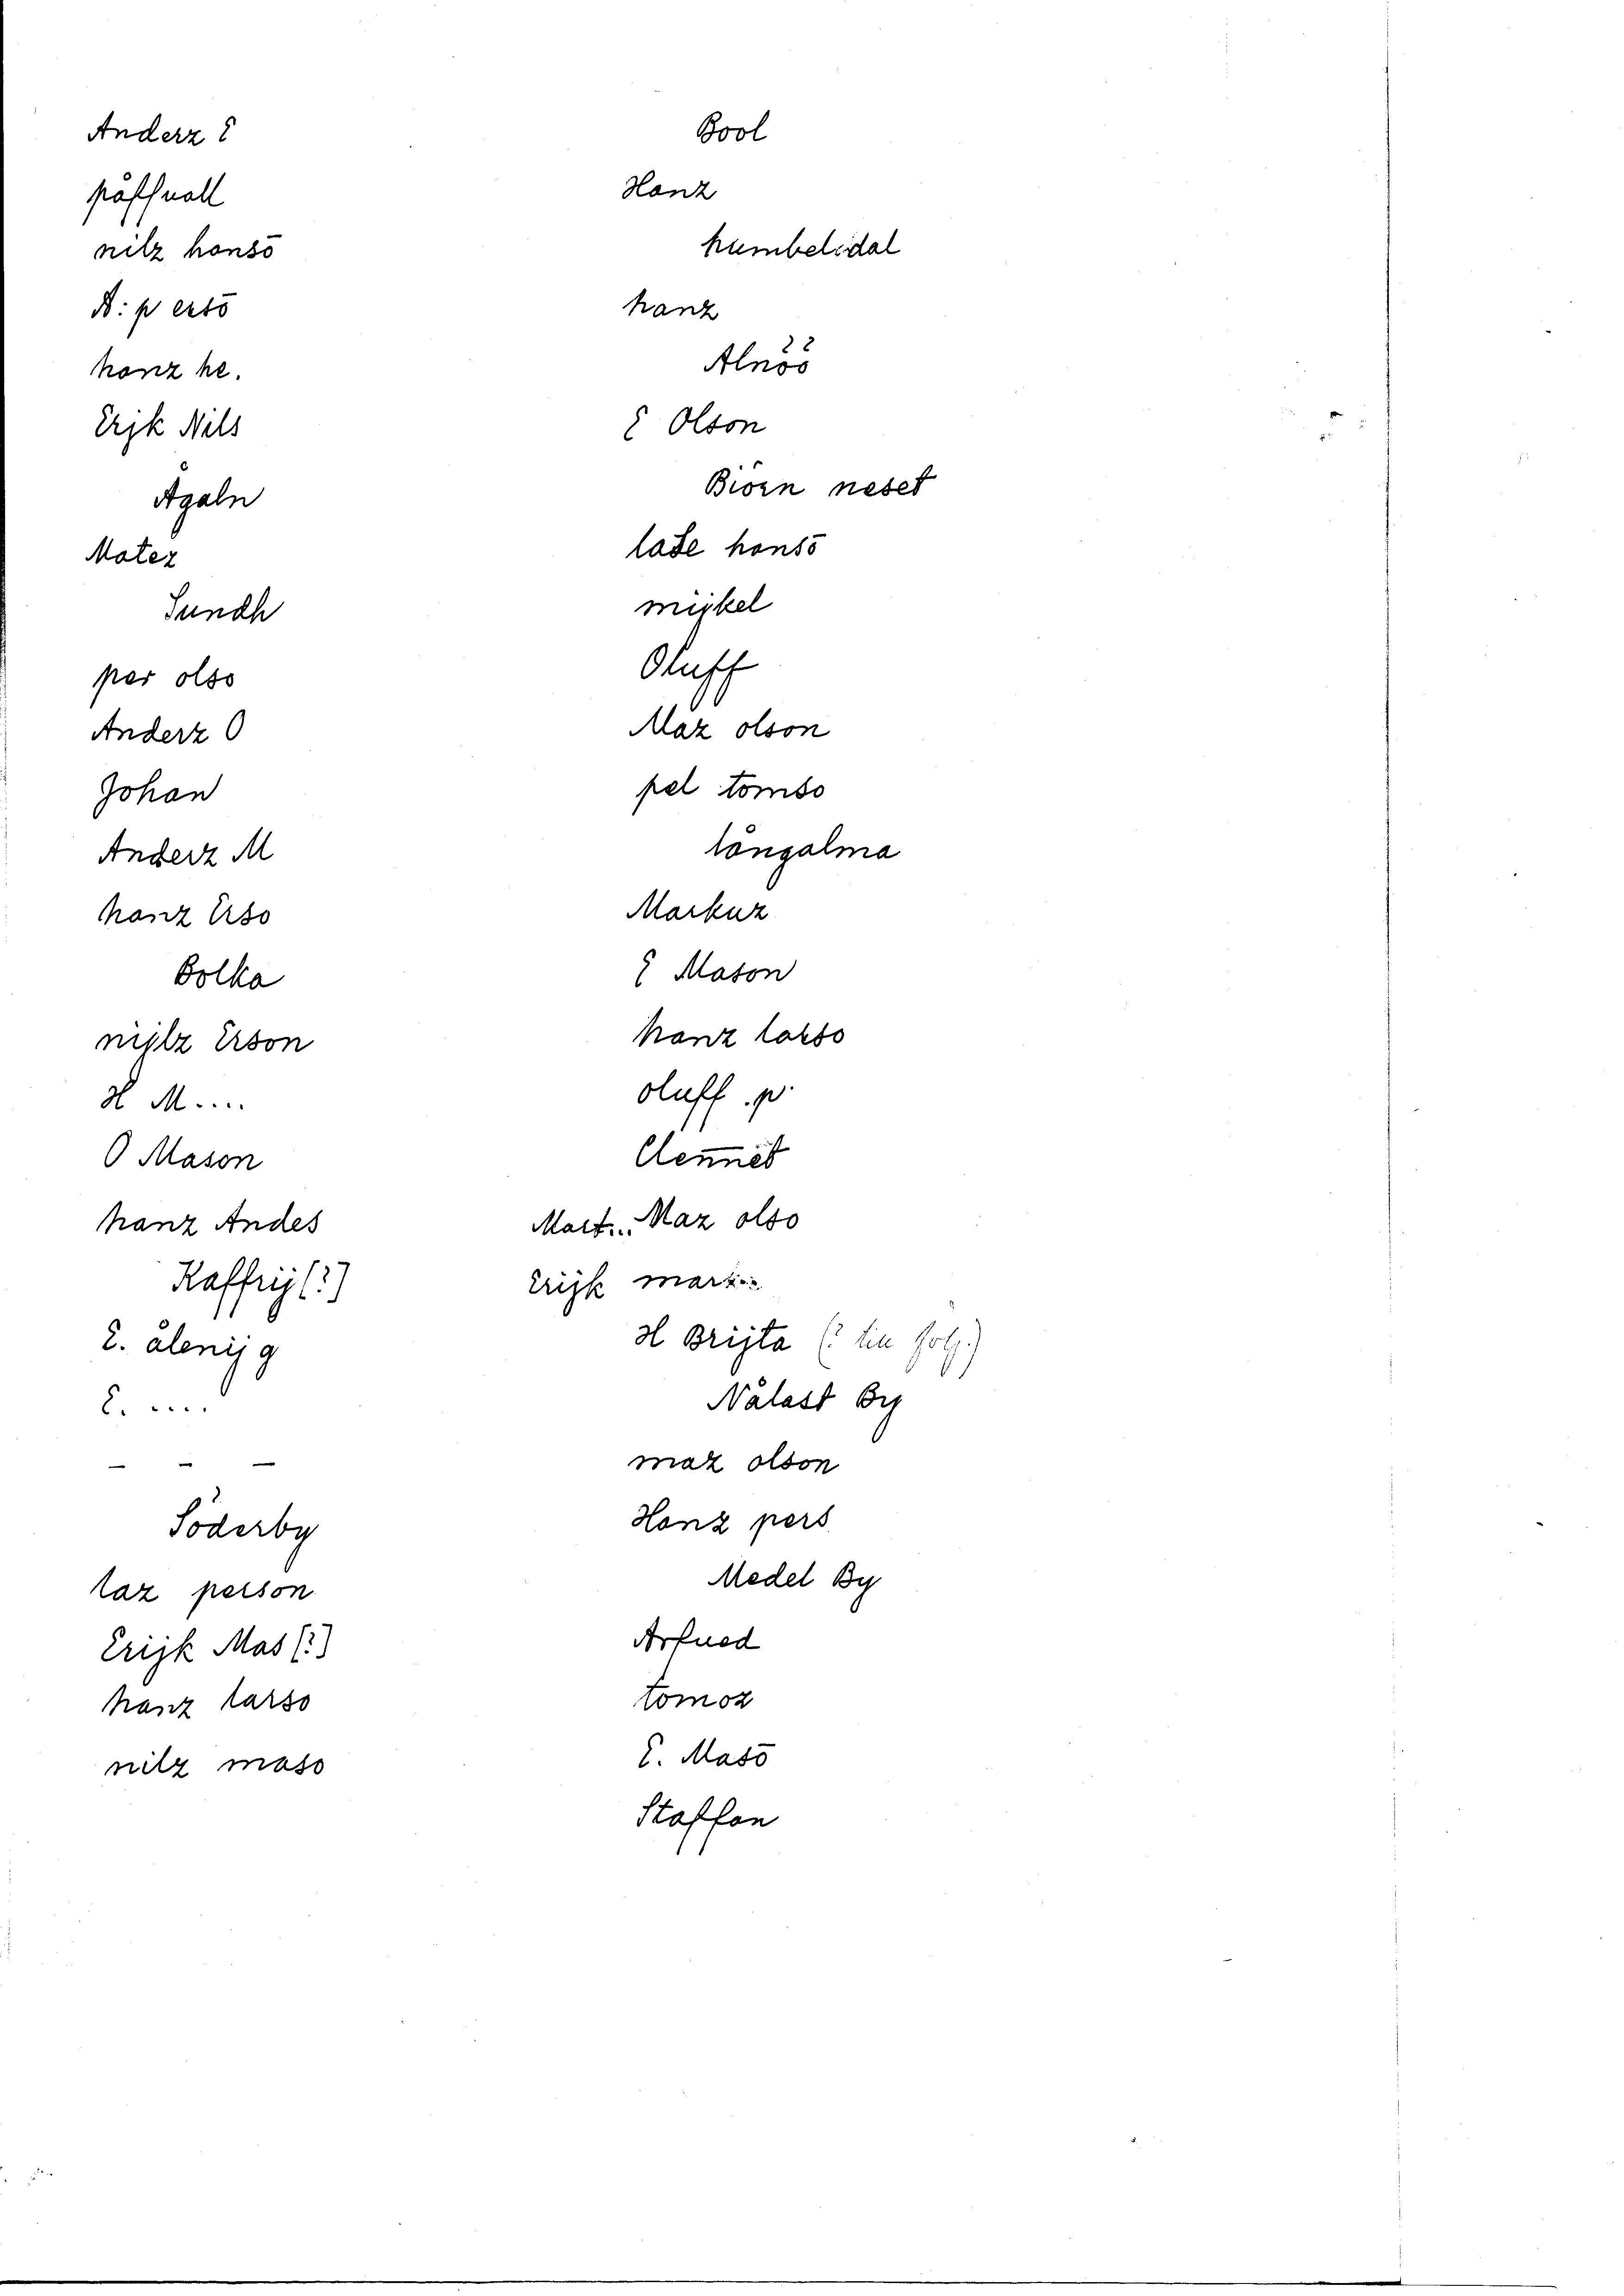 Anderz E
påffuall
nilz hansō
A: p ersō
hanz he.
Erjk Nils
Ågaln
Matez
Sundh
per olso
Anderz O
Johan
Anderz M
hanz Erso
Bolka
nijlz Erson
H M....
O Mason
hanz Andes
Raffrij (?)
E. ålenij g
E. ....
– – –
Söderby
laz person
Erijk Mas (?)
hanz larso
nilz maso
Bool
Hanz
humbelsdal
hanz
Alnöö
E Olson
Biörn neset
lase hansō
mijkel
Oluff
Maz olson
pel tomso
långalma
Markuz
E Mason
hanz larso
oluff .p.
Clemmet
Mart... Maz olso
Erijk mart...
H Brijta
Nälast By
maz olson
Hanz pers
Medel By
Arfued
tomoz
E. Masō
Staffan